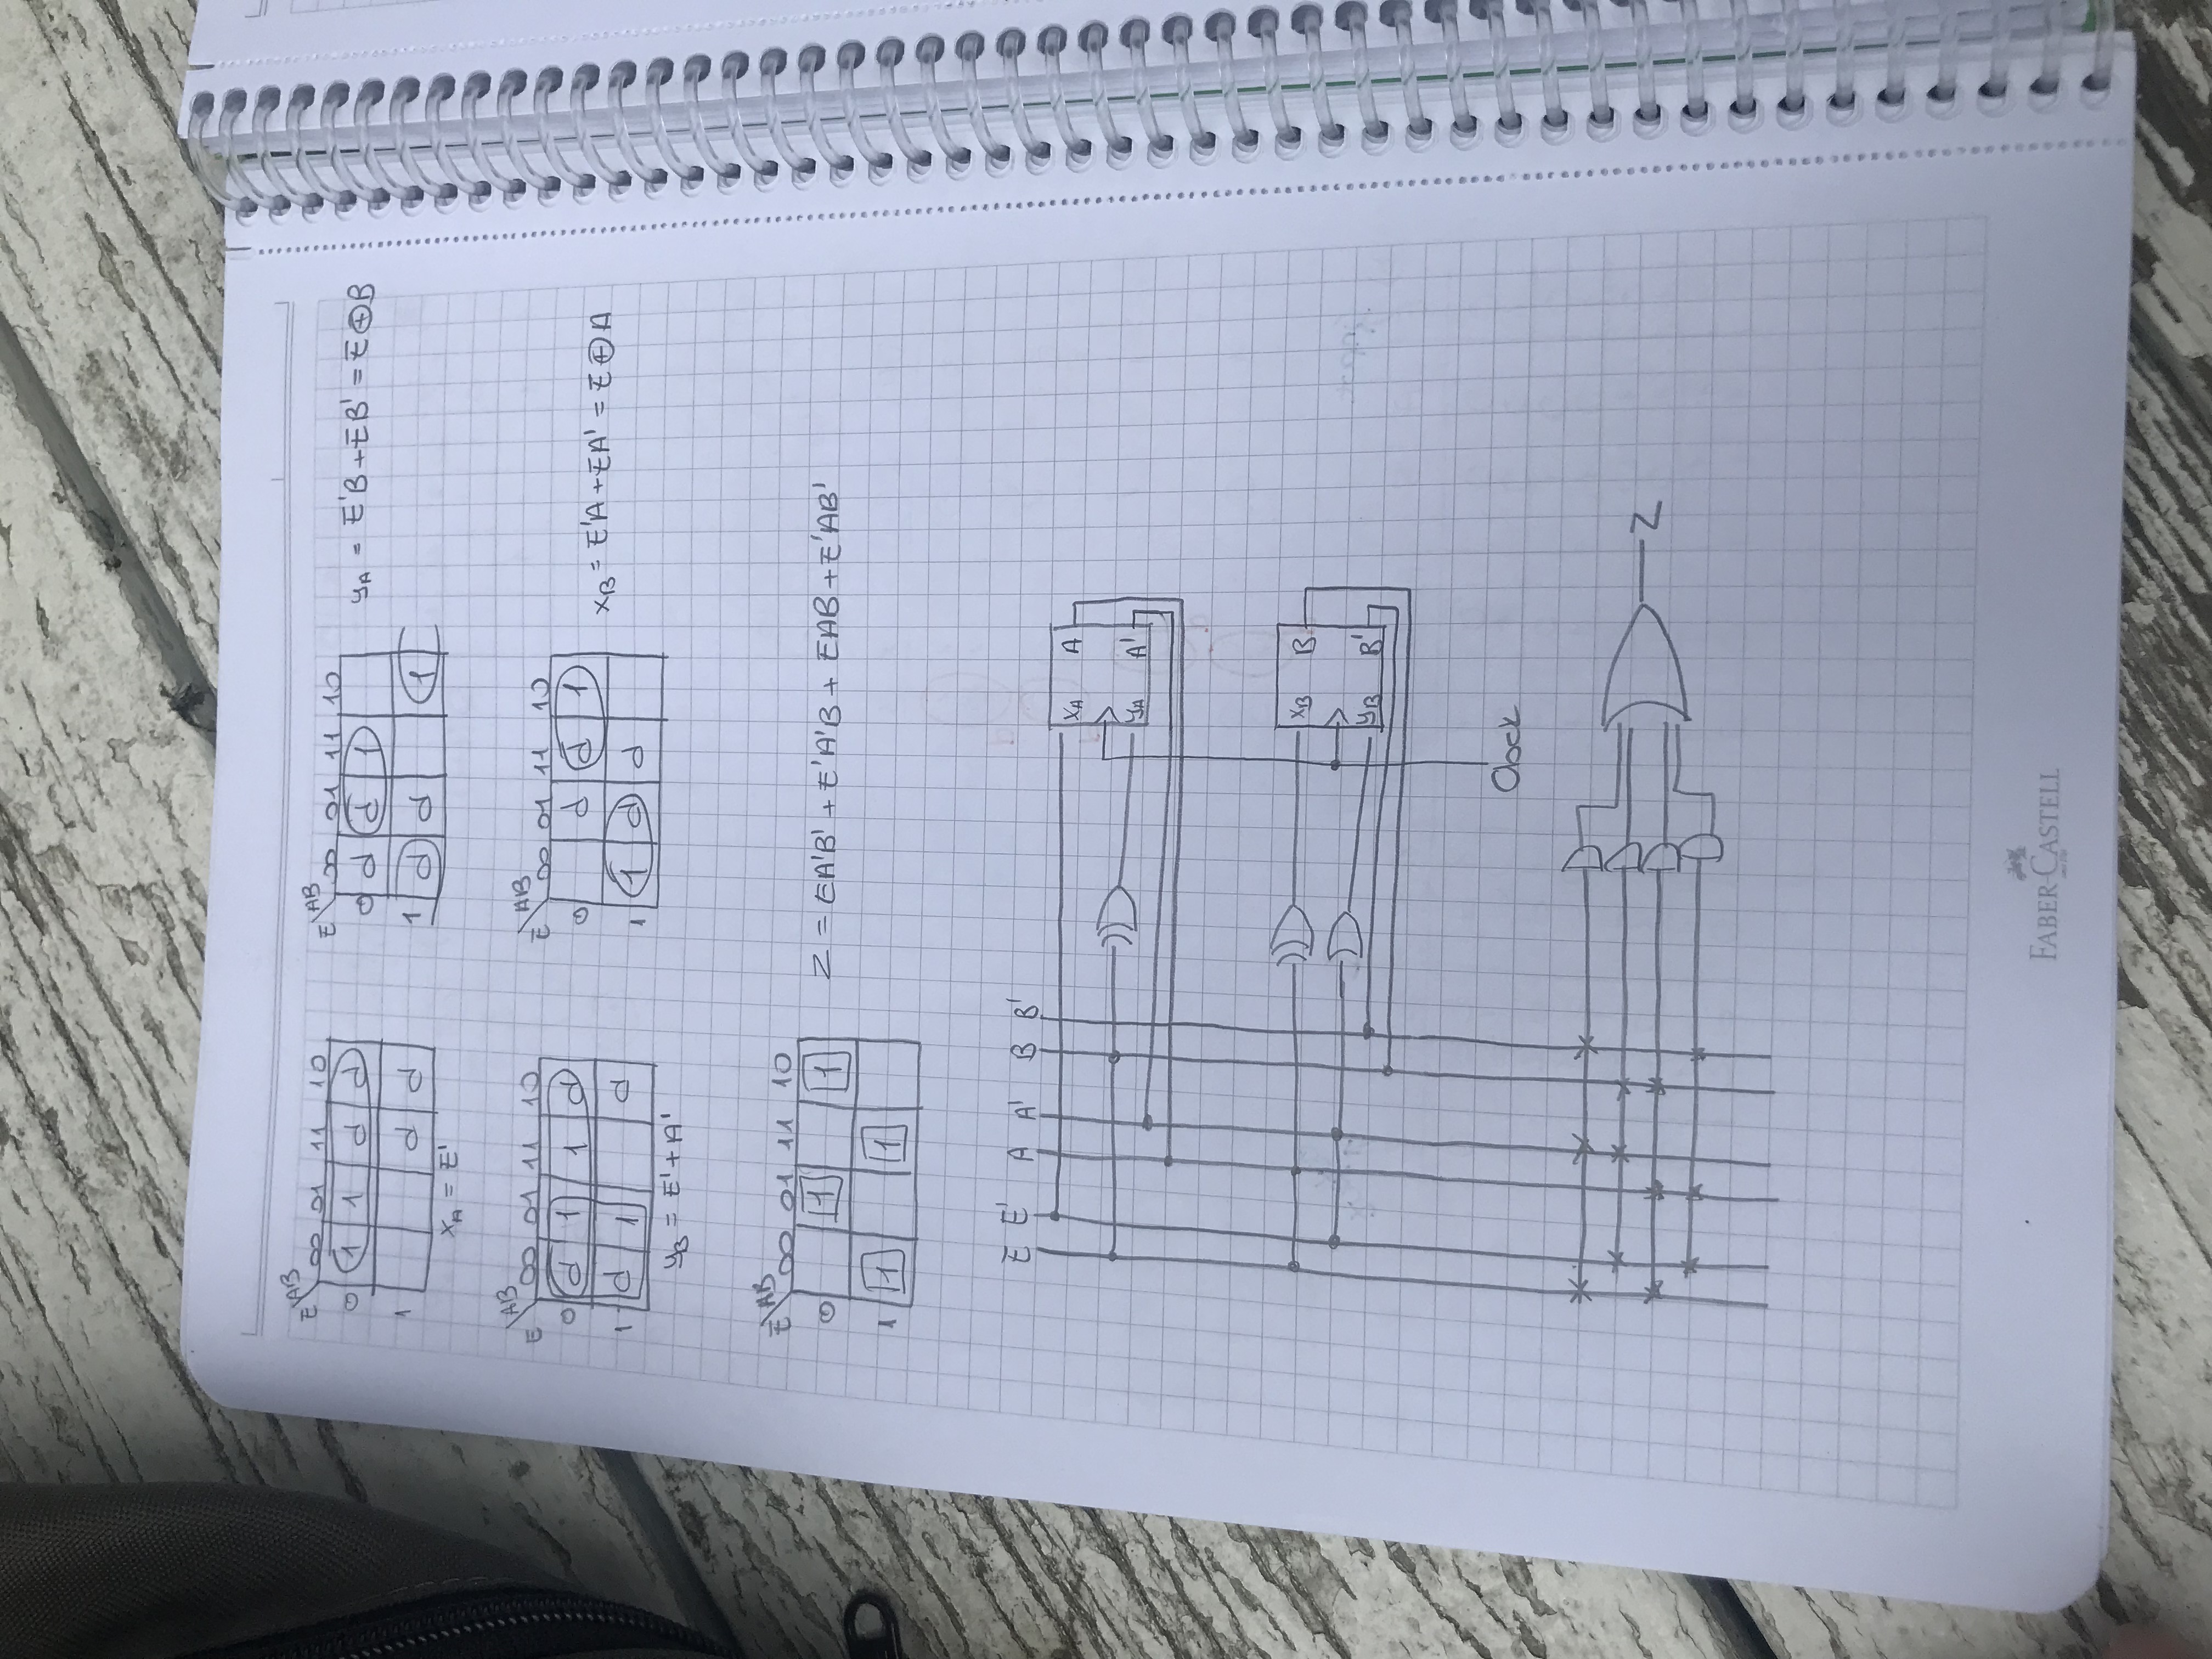 E AB 00 01 11 10
0 1 1 d d
1 d d
xA = E'
E AB 00 01 11 10
0 d d 1
1 d d 1
yA = E'B + EB' = E⊕B
E AB 00 01 11 10
0 d 1 1 d
1 d 1 d
yB = E' + A'
E AB 00 01 11 10
0 d d 1
1 1 d d
xB = E'A + EA' = E⊕A
E AB 00 01 11 10
0 1 1
1 1 1
Z = EA'B' + E'A'B + EAB + E'AB'
E E' A A' B B'
xA A
yA A'
xB B
yB B'
Clock
Z
FABER-CASTELL